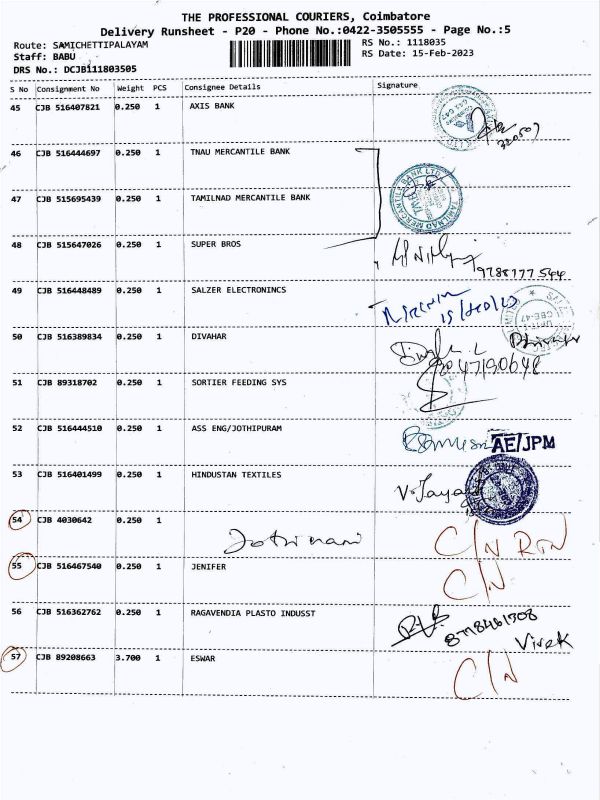 THE PROFESSIONAL COURIERS, Coimbatore
Delivery Runsheet - P20 - Phone No.:0422-3505555 - Page No.:5
Route: SAMICHETTIPALAYAM RS No.: 1118035
Staff: BABU RS Date: 15-Feb-2023
DRS No.: DCJB111803505
S No Consignment No Weight PCS Consignee Details Signature
45 CJB 516407821 0.250 1 AXIS BANK
46 CJB 516444697 0.250 1 TNAU MERCANTILE BANK
47 CJB 515695439 0.250 1 TAMILNAD MERCANTILE BANK
48 CJB 515647026 0.250 1 SUPER BROS
9788177544
49 CJB 516448489 0.250 1 SALZER ELECTRONINCS
50 CJB 516389834 0.250 1 DIVAHAR
51 CJB 89318702 0.250 1 SORTIER FEEDING SYS
52 CJB 516444510 0.250 1 ASS ENG/JOTHIPURAM AE/JPM
53 CJB 516401499 0.250 1 HINDUSTAN TEXTILES
54 CJB 4030642 0.250 1
Jothimani C/N RTN
55 CJB 516467540 0.250 1 JENIFER C/N
56 CJB 516362762 0.250 1 RAGAVENDIA PLASTO INDUSST
Vivek
57 CJB 89208663 3.700 1 ESWAR C/N